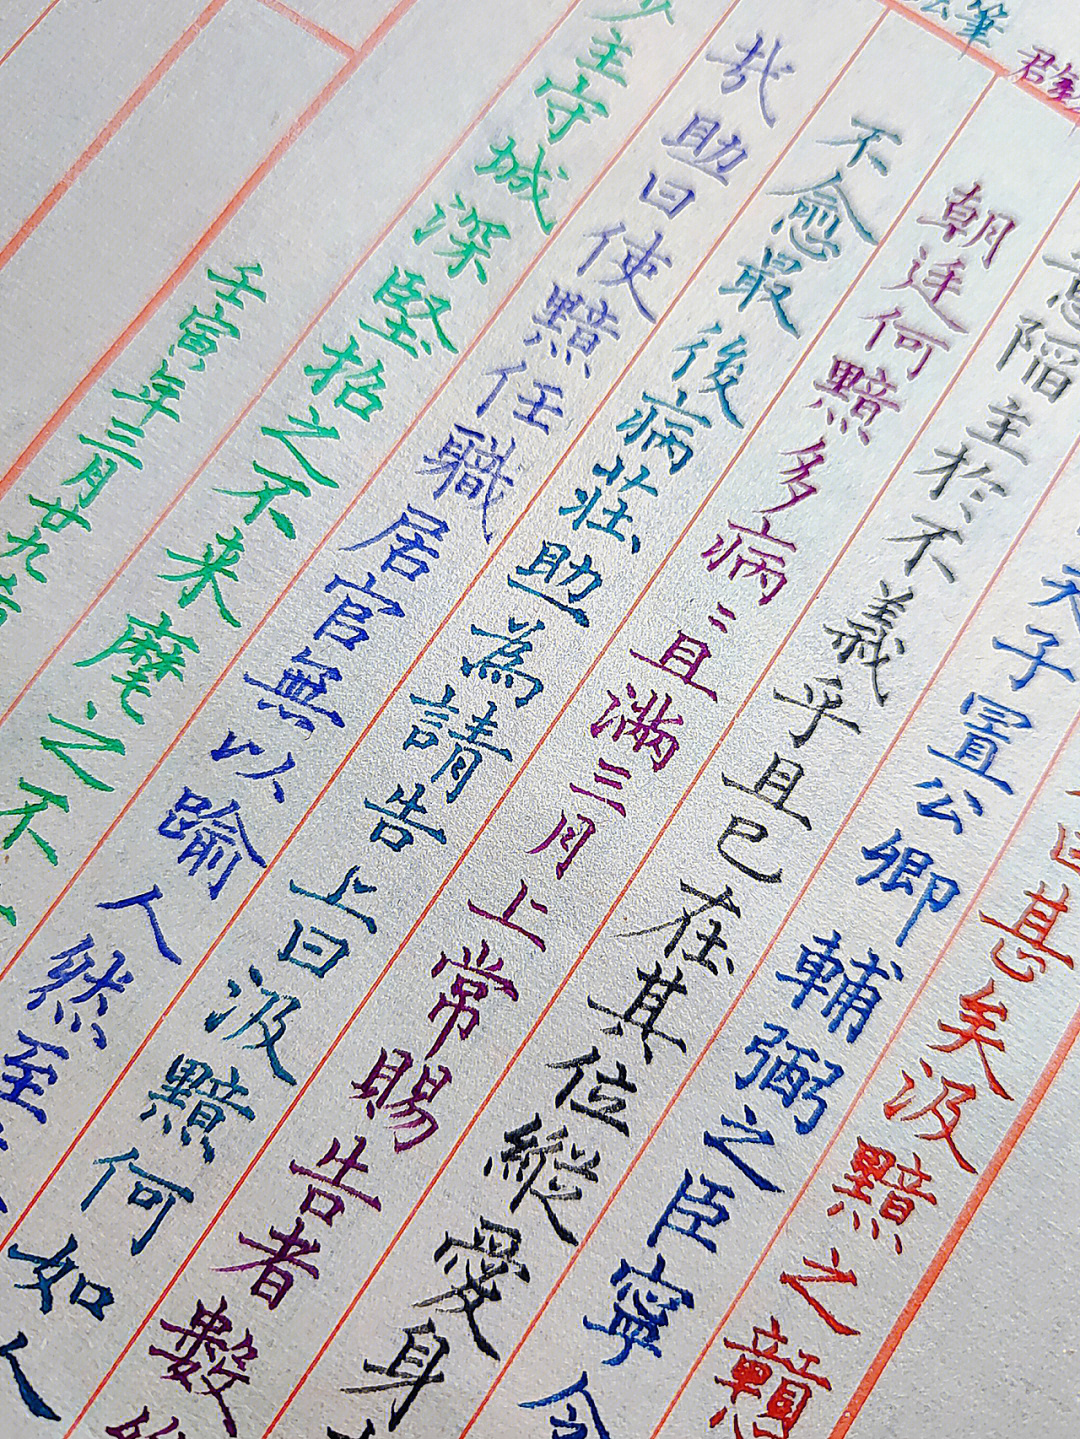 曰甚矣汲黯之戇
天子置公卿輔弼之臣寧令
意陷主於不義乎且已在其位縱愛身
朝廷何黯多病〻且滿三月上常賜告者數
不愈最後病莊助為請告上曰汲黯何如人
哉助曰使黯任職居官無以踰人然至
少主守城深堅招之不来麾之不
壬寅年三月廿九
筆